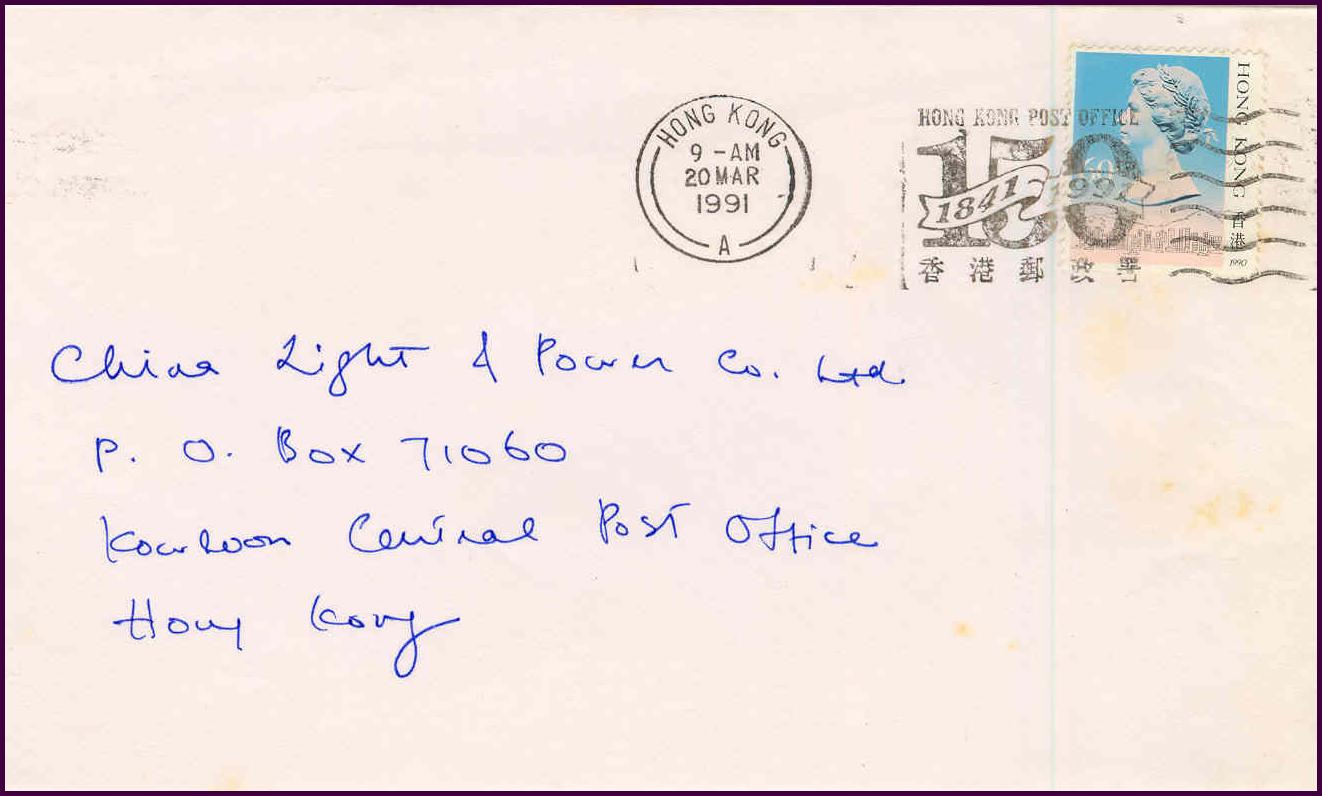 HONG KONG
9 - AM
20 MAR
1991
A
HONG KONG POST OFFICE
150
1841 1991
香港郵政署
60¢
HONG KONG 香港
1990
China Light & Power Co. Ltd.
P. O. Box 71060
Kowloon Central Post Office
Hong Kong